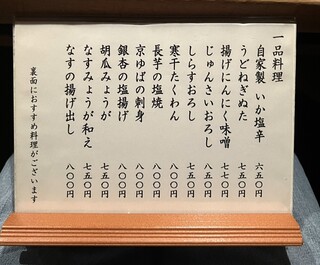 一品料理
自家製 いか塩辛 六五〇円
うどねぎぬた 七五〇円
揚げにんにく味噌 七七〇円
じゅんさいおろし 八五〇円
しらすおろし 七五〇円
寒干たくわん 七五〇円
長芋の塩焼 八〇〇円
京ゆばの刺身 八〇〇円
銀杏の塩揚げ 八〇〇円
胡瓜みょうが 七五〇円
なすみょうが和え 七五〇円
なすの揚げ出し 八〇〇円
裏面におすすめ料理がございます